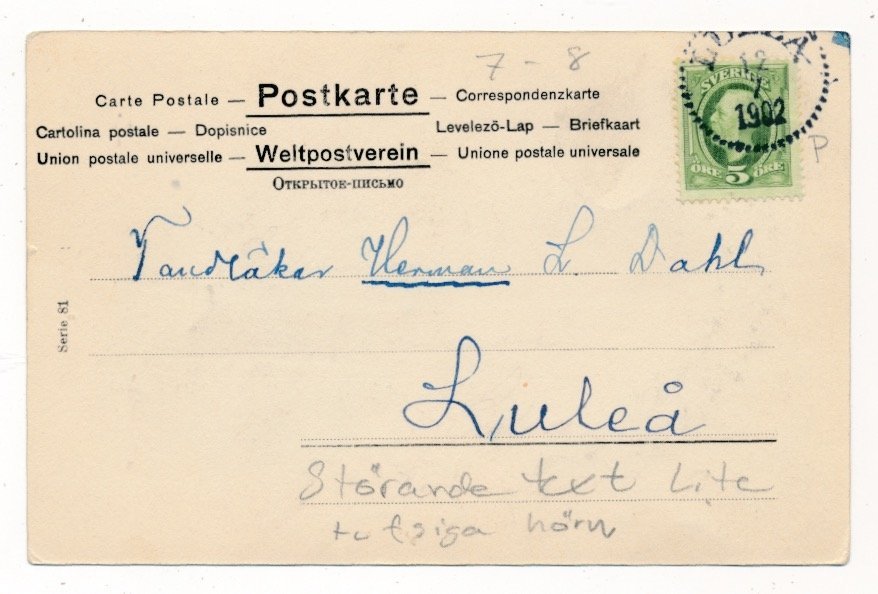 7 - 8
Carte Postale — Postkarte — Correspondenzkarte
Cartolina postale — Dopisnice Levelezö-Lap — Briefkaart
Union postale universelle — Weltpostverein — Unione postale universale
Открытое-письмо
SVERIGE
12
7
1902
ÖRE 5 ÖRE
P
Tandläkar Herman L. Dahl
Luleå
Serie 81
Störande text Lite
tufsiga hörn